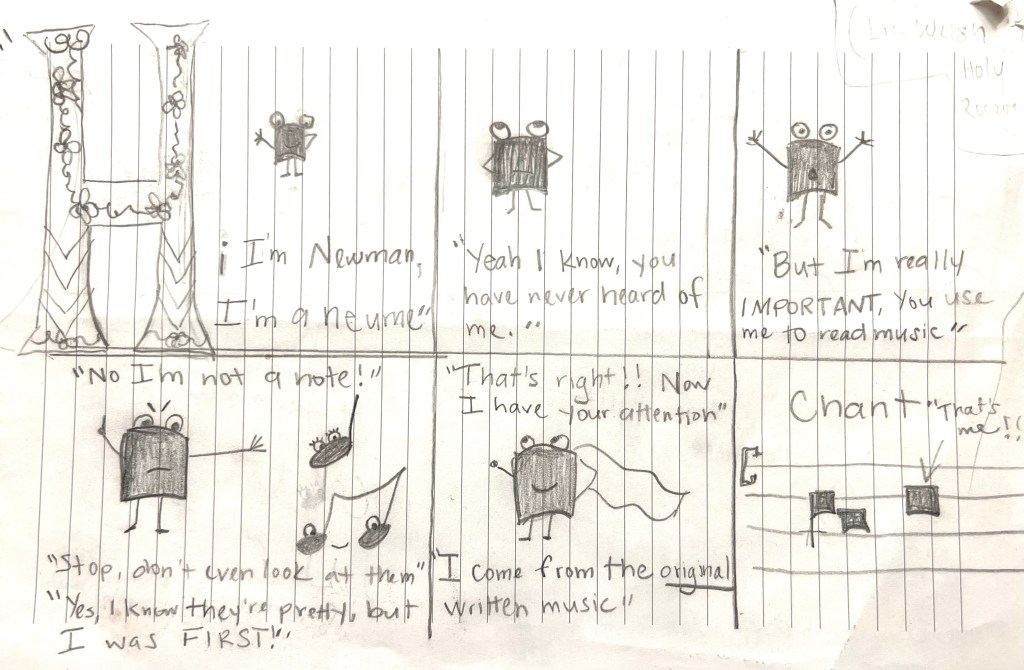 "Hi I'm Newman,
I'm a neume"
"Yeah I know, you
have never heard of
me."
"But I'm really
IMPORTANT, You use
me to read music"
Welsh
Holy
"No I'm not a note!"
"Stop, don't even look at them"
"Yes, I know they're pretty, but
I was FIRST!"
"That's right!! Now
I have your attention"
"I come from the original
written music"
Chant
"That's
me!!